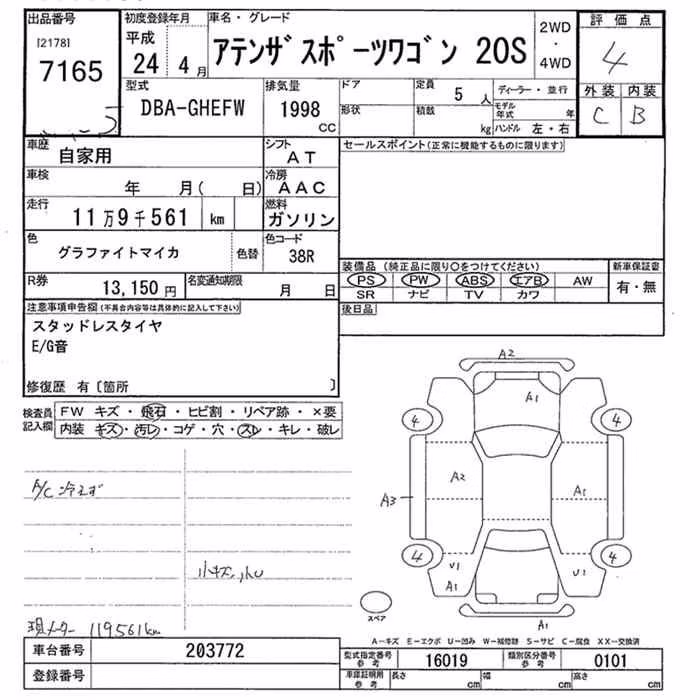 出品番号
[2178]
7165
初度登録年月
平成
24 4月
車名・グレード
アテンザスポーツワゴン 20S
2WD
・
4WD
評価点
4
外装 内装
C B
型式
DBA-GHEFW
排気量
1998
CC
ドア
形状
定員
5 人
積載
kg
ディーラー・並行
モデル年式 年
ハンドル 左・右
車歴
自家用
シフト
AT
セールスポイント(正常に機能するものに限ります)
車検
年 月( 日)
冷房
AAC
走行
11万9千561 km
燃料
ガソリン
色
グラファイトマイカ
色替
色コード
38R
R券
13,150円
名変通知期限
月 日
装備品(純正品に限り○をつけてください)
PS PW ABS エアB AW
SR ナビ TV カワ
新車保証書
有・無
後日品
注意事項申告欄(不具合内容等は具体的に記入して下さい)
スタッドレスタイヤ
E/G音
修復歴 有〔箇所 〕
検査員
記入欄
FW キズ・飛石・ヒビ割・リペア跡・×要
内装 キズ・汚レ・コゲ・穴・スレ・キレ・破レ
A/C冷えず
現メーター 119561km
A2
A1
4 4
A2
A3
A1
4 4
U1
A1
U1
スペア
A1
A-キズ E-エクボ U-凹み W-補修跡 S-サビ C-腐食 XX-交換済
車台番号
203772
登録番号
型式指定番号
参考
16019
類別区分番号
参考
0101
車庫証明用
参考
長さ cm
幅 cm
高さ cm